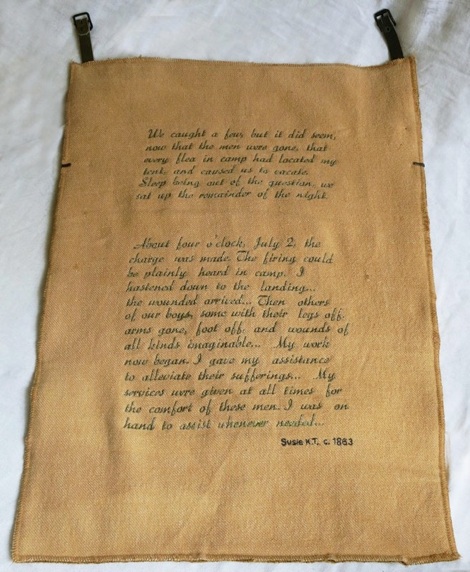 We caught a few, but it did seem,
now that the men were gone, that
every flea in camp had located my
tent, and caused us to vacate.
Sleep being out of the question, we
sat up the remainder of the night.
About four o'clock, July 2, the
charge was made. The firing could
be plainly heard in camp. I
hastened down to the landing...
the wounded arrived... Then others
of our boys, some with their legs off,
arms gone, foot off, and wounds of
all kinds imaginable... My work
now began. I gave my assistance
to alleviate their sufferings... My
services were given at all times for
the comfort of these men. I was on
hand to assist whenever needed...
Susie K.T., c. 1863